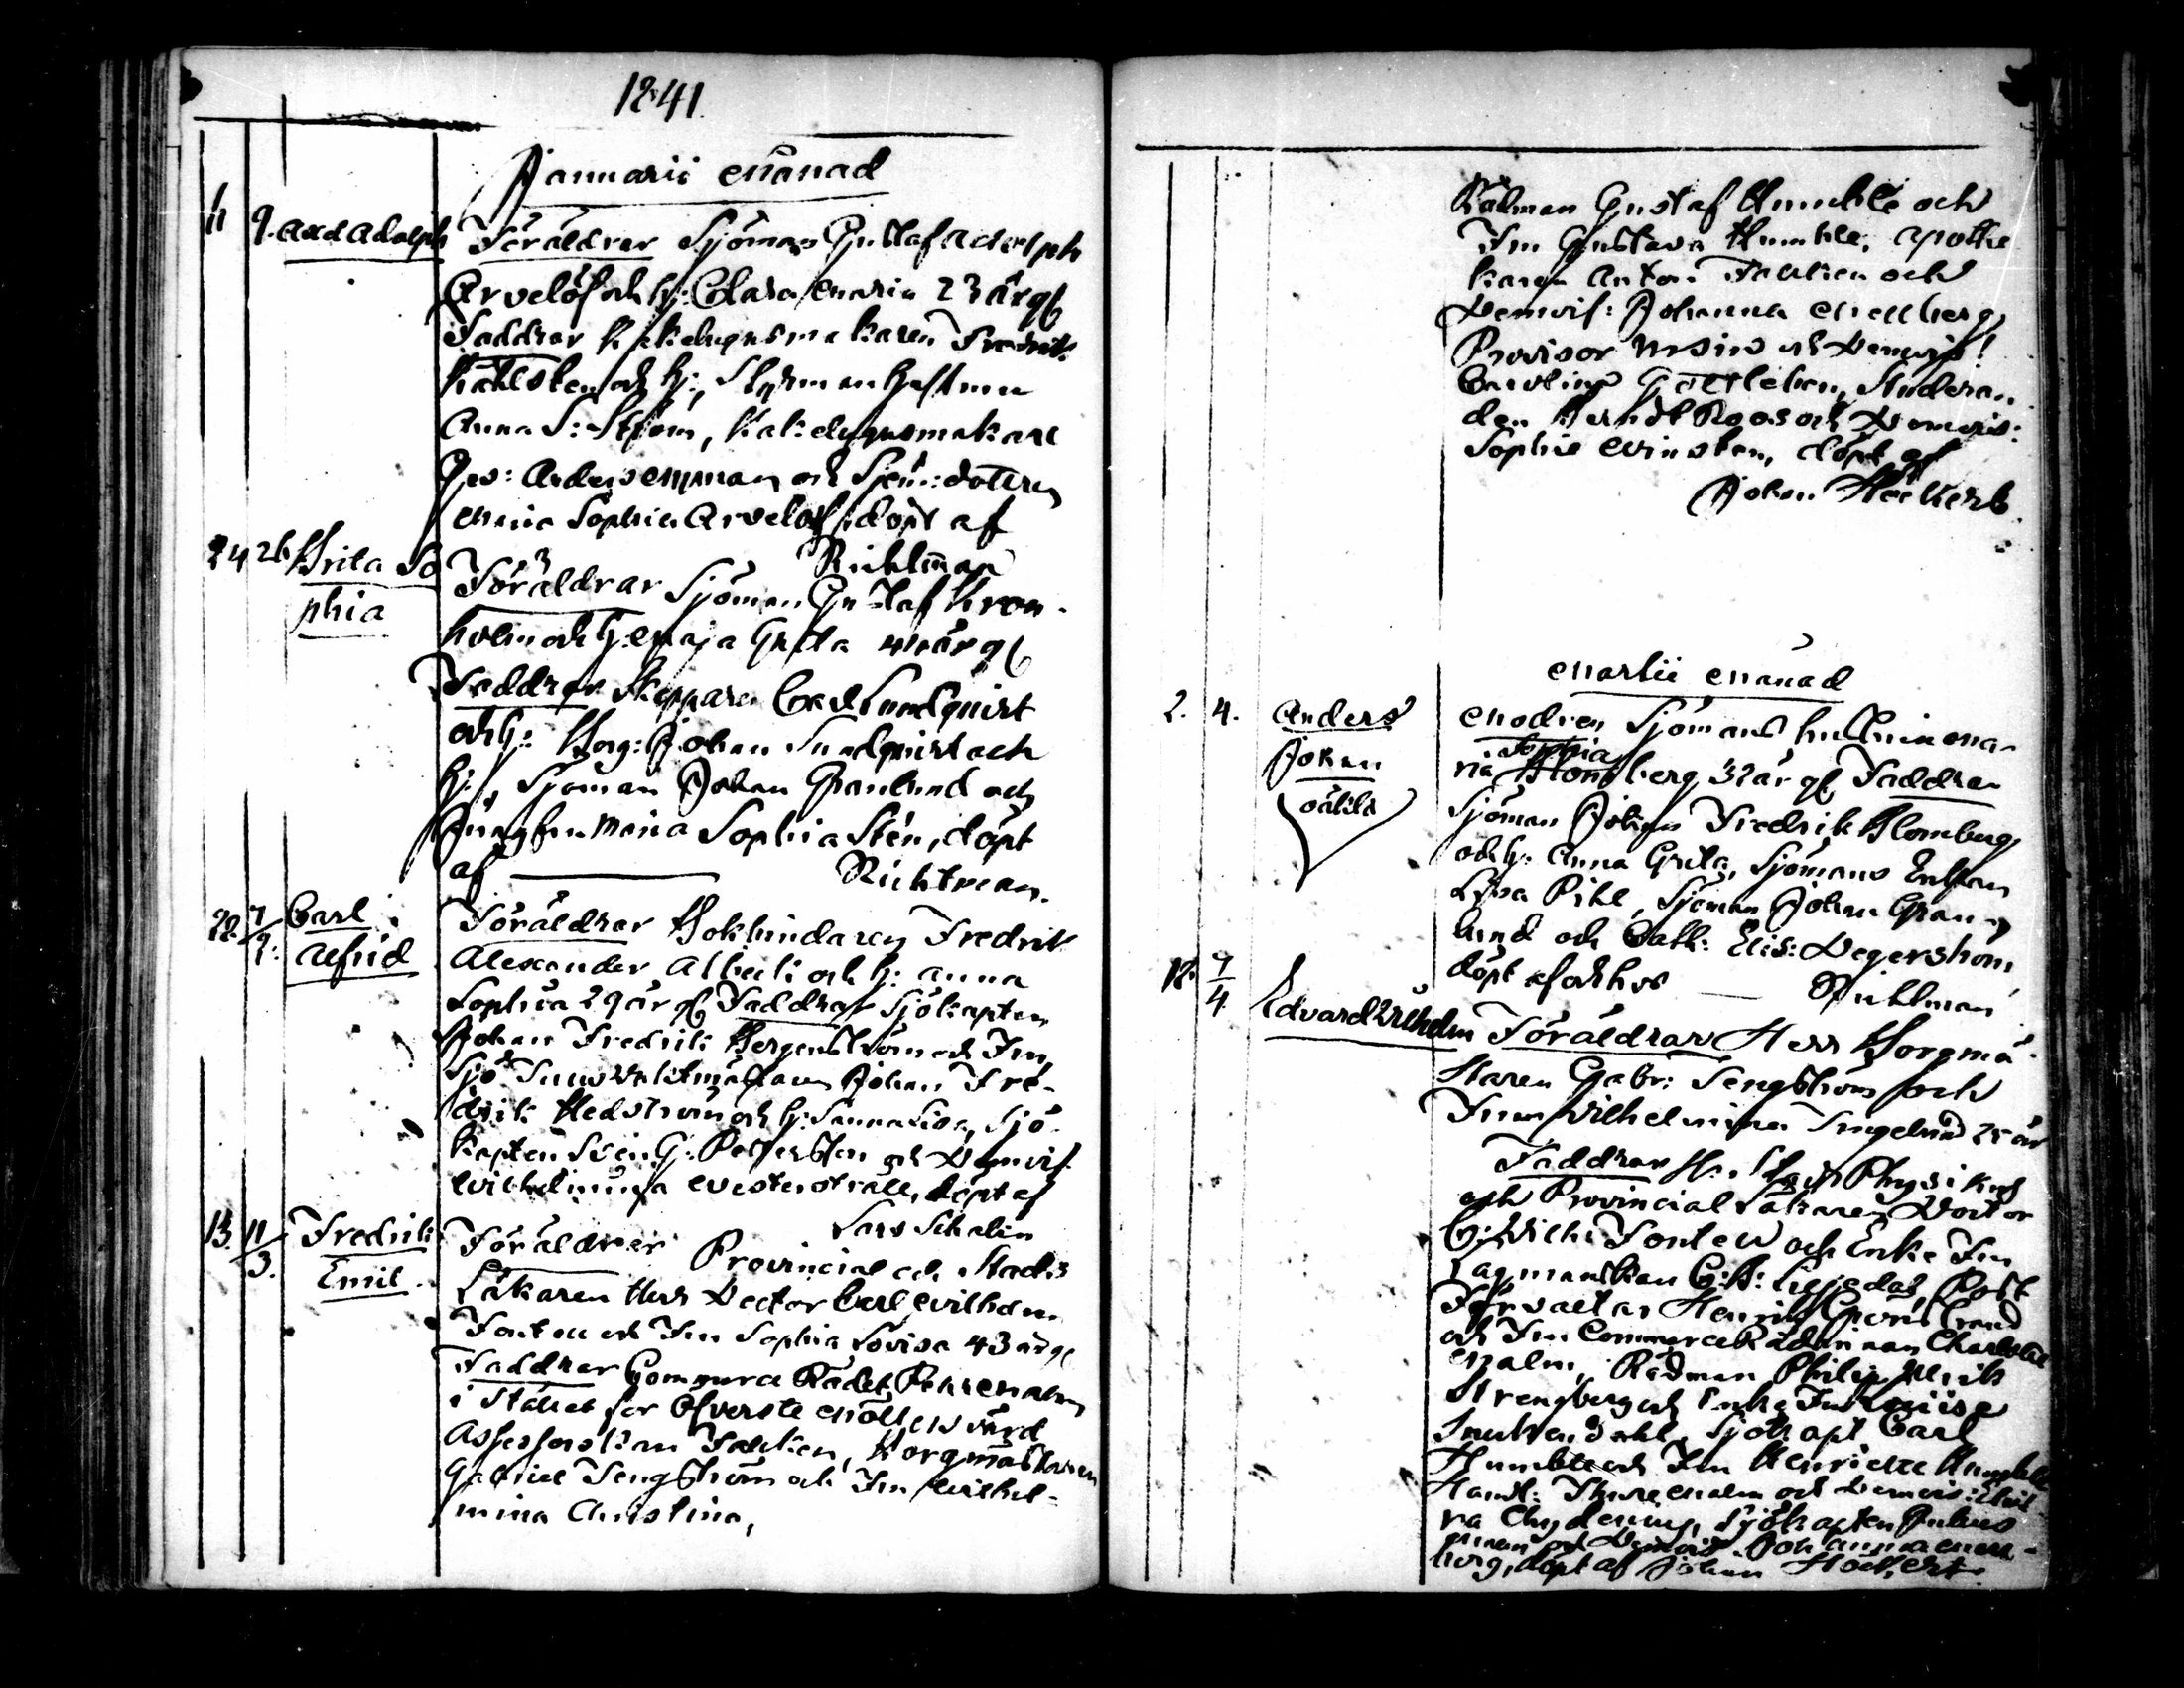 1841.
Januarii Månad
11 9. Axel Adolph Föräldrar Sjöman Gustaf Adolph
Arvelöf och h: Clara Maria 23 år gl
Faddrar Kakelugnsmakaren Fredrik
och h:, Styrmans Hustrun
Anna S: Ström, Kakelugnsmakare
Ges: Anders Nyman och Sjöm: dottren
Maria Sophia Arvelöf, döpt af
Richtman
24 26 Brita So
phia
Föräldrar Sjöman Gustaf Kron-
holm och h: Maja Greta år gl
Faddrar Skepparen Carl Sundqvist
och h: Borg: Johan Sundqvist och
h:, Sjöman Johan Granlund och
Jungfru Maria Sophia Stén, döpt
af Richtman.
22. 7/2. Carl
Alfrid
Föräldrar Bokbindaren Fredrik
Alexander Alberti och h: Anna
Sophia 29 år gl Faddrar Sjökapten
Johan Fredrik Bergenström och Fru,
Sjö Johan Fre-
drik Hedström och h: Sanna Lisa, Sjö-
kapten Sven G. Pettersson och Demois.
Wilhelmina Westerstråle, döpt af
Lars Schalin
13. 11/3. Fredrik
Emil.
Föräldrar Provincial och Stads
Läkaren Herr Doctor Carl Wilhelm
Fontell och Fru Sophia Lovisa 43 år gl
Faddrar Commerce Rådet Pehr Malm
i stället för Öfverste Möllersvärd
Assessorskan Falcken, Borgmästaren
Gabriel Tengström och Fru Wilhel-
mina Christina,
Rådman Gustaf Humble och
Fru Gustava Humble, Apothe
karen Anton Falcken och
Demois: Johanna Mellberg,
Provisor och Demois:
Carolina Gottleben, Studeran
den Berndt Roos och Demois:
Sophie Winsten, döpt af
Johan Höckert.
Martii Månad
2. 4. Anders
Johan
oäkta
Modren Sjömans hustrun Ma-
ria Sophia Blomberg 32 år gl Faddrar
Sjöman Johan Fredrik Blomberg
och h: Anna Greta, Sjömans Enkan
Lisa Pihl, Sjöman Johan Gran-
lund och Cath: Elis: Degerström,
döpt af och hos Richtman
18. 7/4. Edvard Wilhelm Föräldrar Herr Borgmä-
staren Gabr: Tengström och
Frun Wilhelmina Ingelund 25 år
Faddrar Hr. Stads Physikus
och Provincial Läkaren Doctor
C: Wilh: Fontell och Enke Fru
Lagmanskan C: B: Lilljedal, Post
Förvaltar Henrik Georg Crand
och Fru Commerce Rådinnan Charlotte
Malm, Rådman Philip Ulrik
Strengberg och Enke Fru Lovisa
Snickendahl, Sjökapt Carl
Humble och Fru Henriette Humble
Handl: Thure Malm och Demois:
na Chydenius, Sjökapten Julius
och Demois. Johanna Mell-
berg, döpt af Johan Höckert.